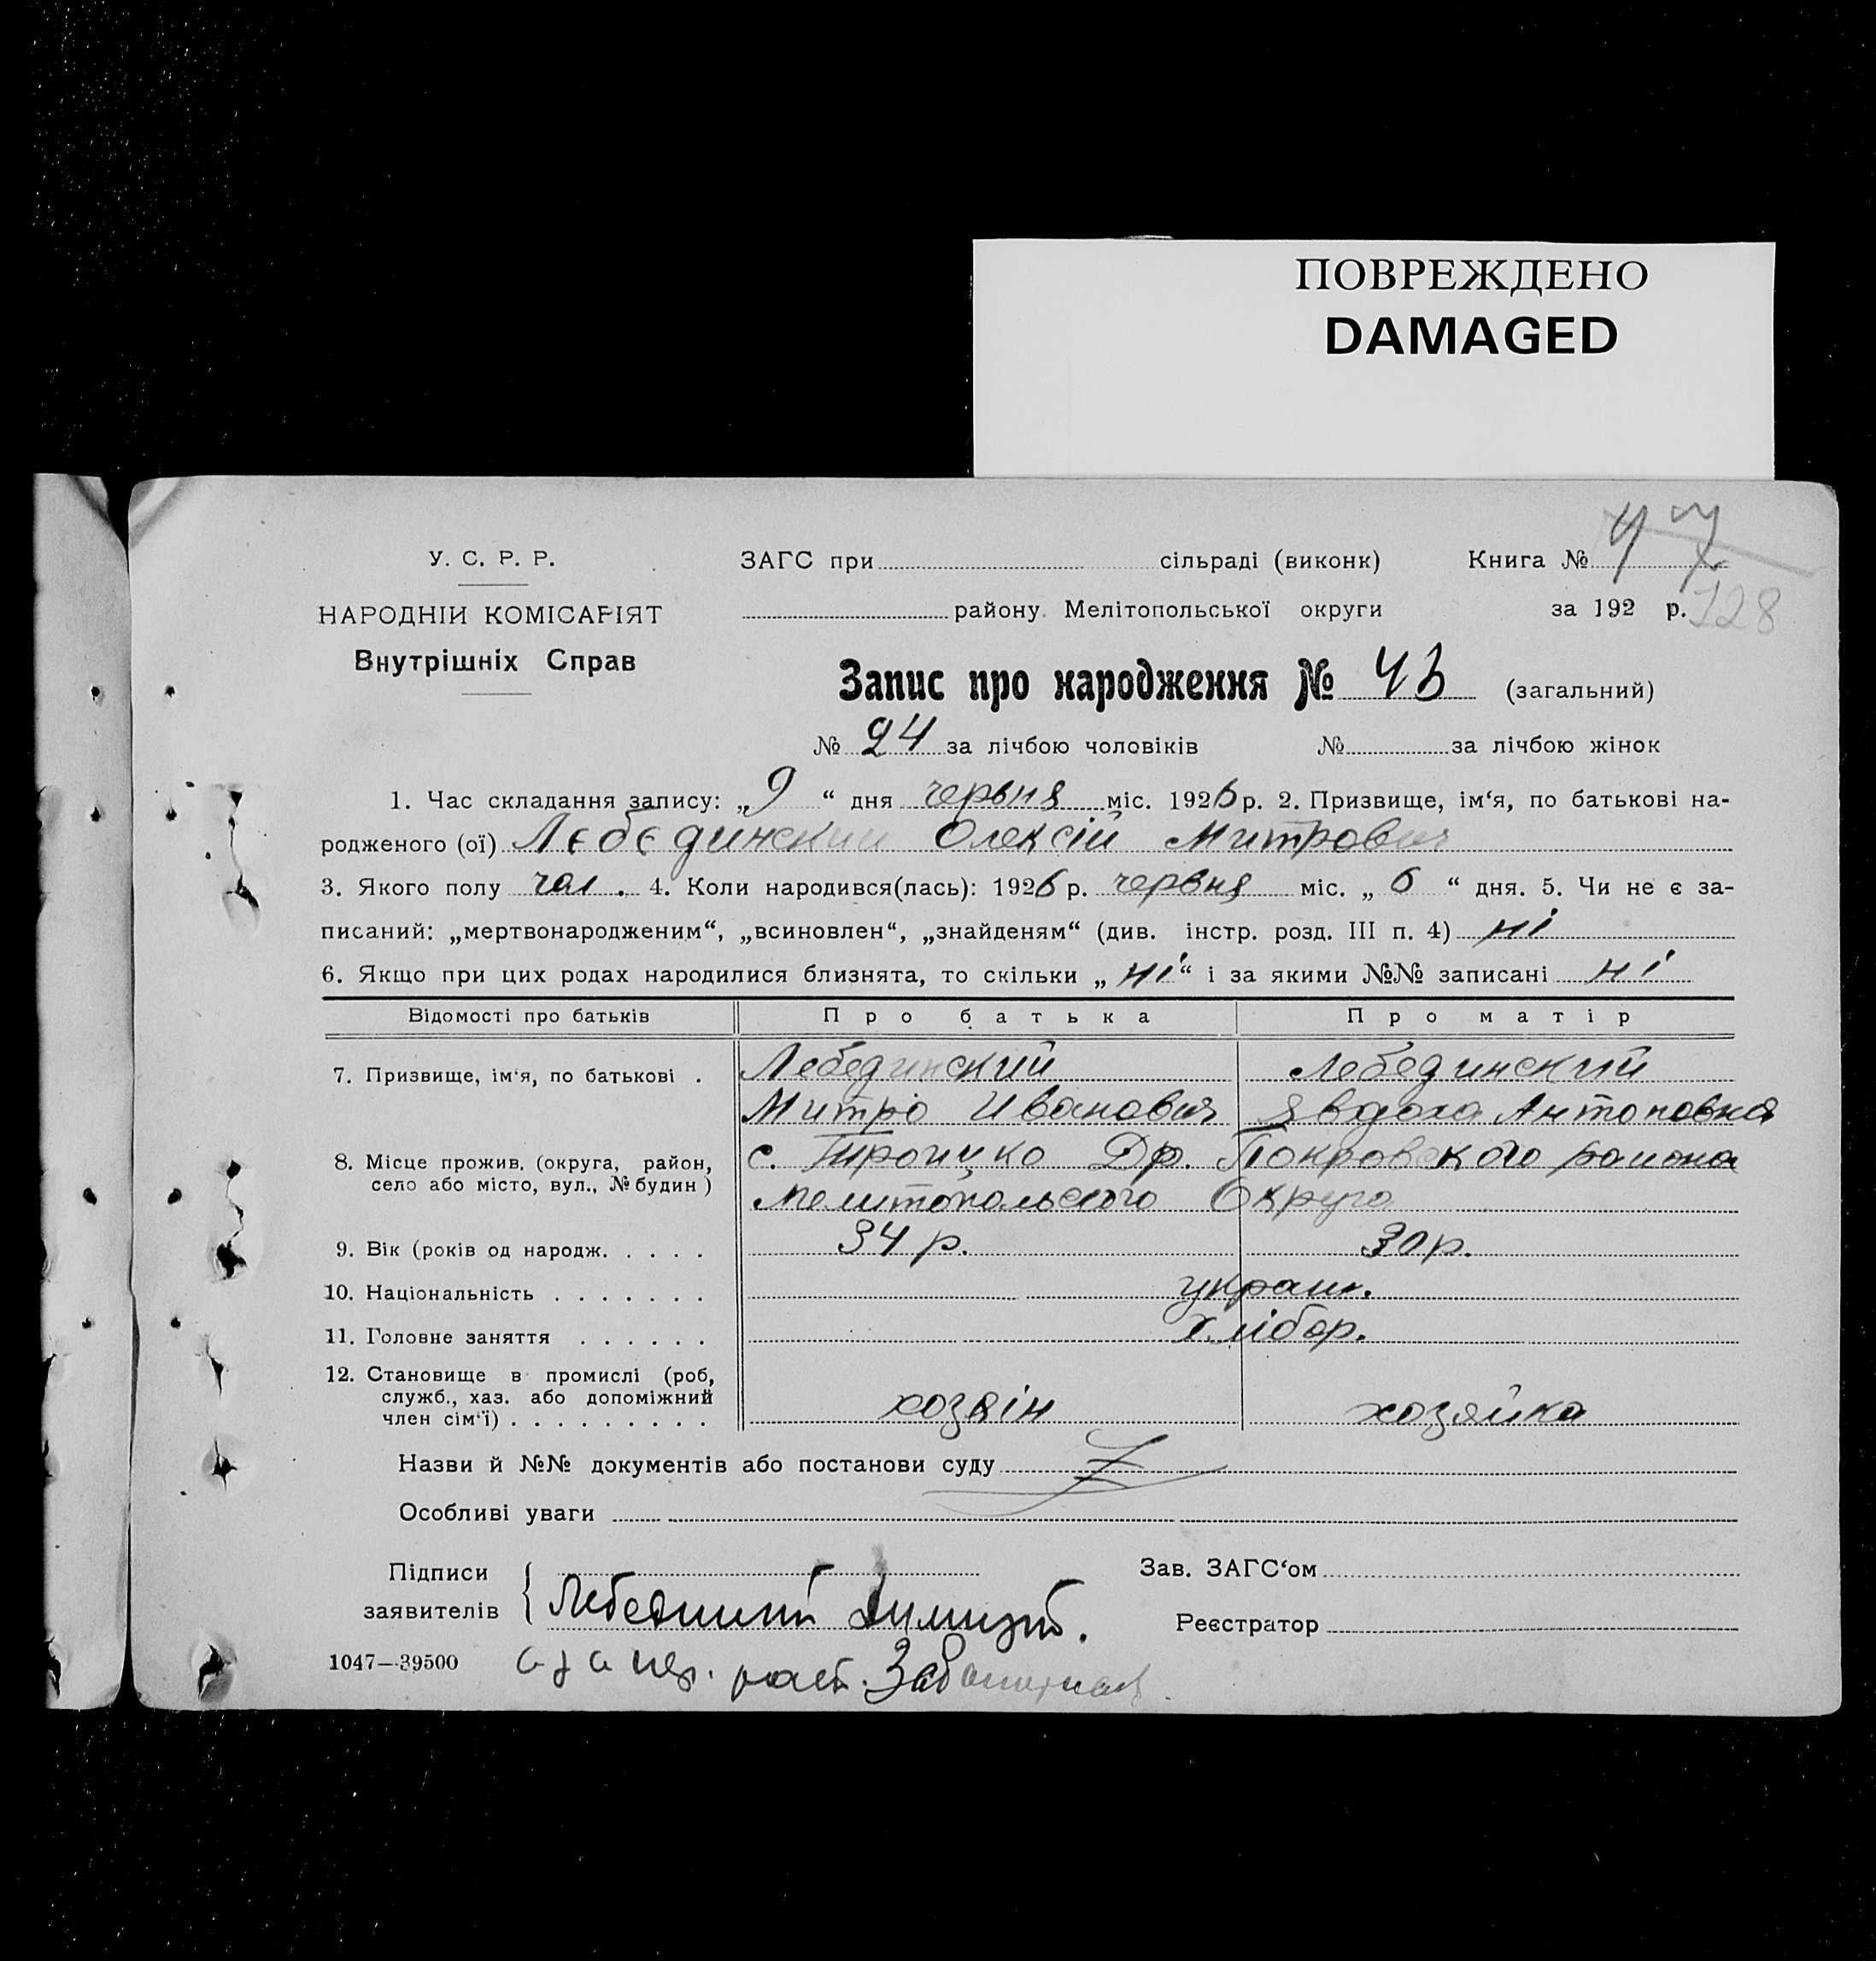 ПОВРЕЖДЕНО
DAMAGED
У. С. Р. Р.
НАРОДНІЙ КОМІСАРІЯТ
Внутрішніх Справ
ЗАГС при сільраді (виконк) Книга №
району Мелітопольської округи за 192 р. 128
Запис про народження № 43 (загальний)
№ 24 за лічбою чоловіків № за лічбою жінок
1. Час складання запису: „9“ дня червня міс. 1926 р. 2. Призвище, ім‘я, по батькові на-
родженого (ої) Лєбєдинский Олексій Митрович
3. Якого полу чол. 4. Коли народився(лась): 1926 р. червня міс. „6“ дня. 5. Чи не є за-
писаний: „мертвонародженим“, „всиновлен“, „знайденям“ (див. інстр. розд. III п. 4) ні
6. Якщо при цих родах народилися близнята, то скільки „ні“ і за якими №№ записані ні
Відомості про батьків Про батька Про матір
7. Призвище, ім‘я, по батькові . Лебединский Лебединский
Митро Иванович Явдоха Антоновна
8. Місце прожив. (округа, район, село або місто, вул., № будин) с. Троицко Др. Покровского района
Мелитопольского Округа
9. Вік (років од народж. . . . . 34 р. 30 р.
10. Національність . . . . . . . україн.
11. Головне заняття . . . . . . хлібор.
12. Становище в промислі (роб,
служб., хаз. або допоміжний
член сім‘ї) . . . . . . . . . хозяін хозяйка
Назви й №№ документів або постанови суду
Особливі уваги
Підписи
заявителів { Лебединский
Зав. ЗАГС‘ом
Реєстратор
1047—39500